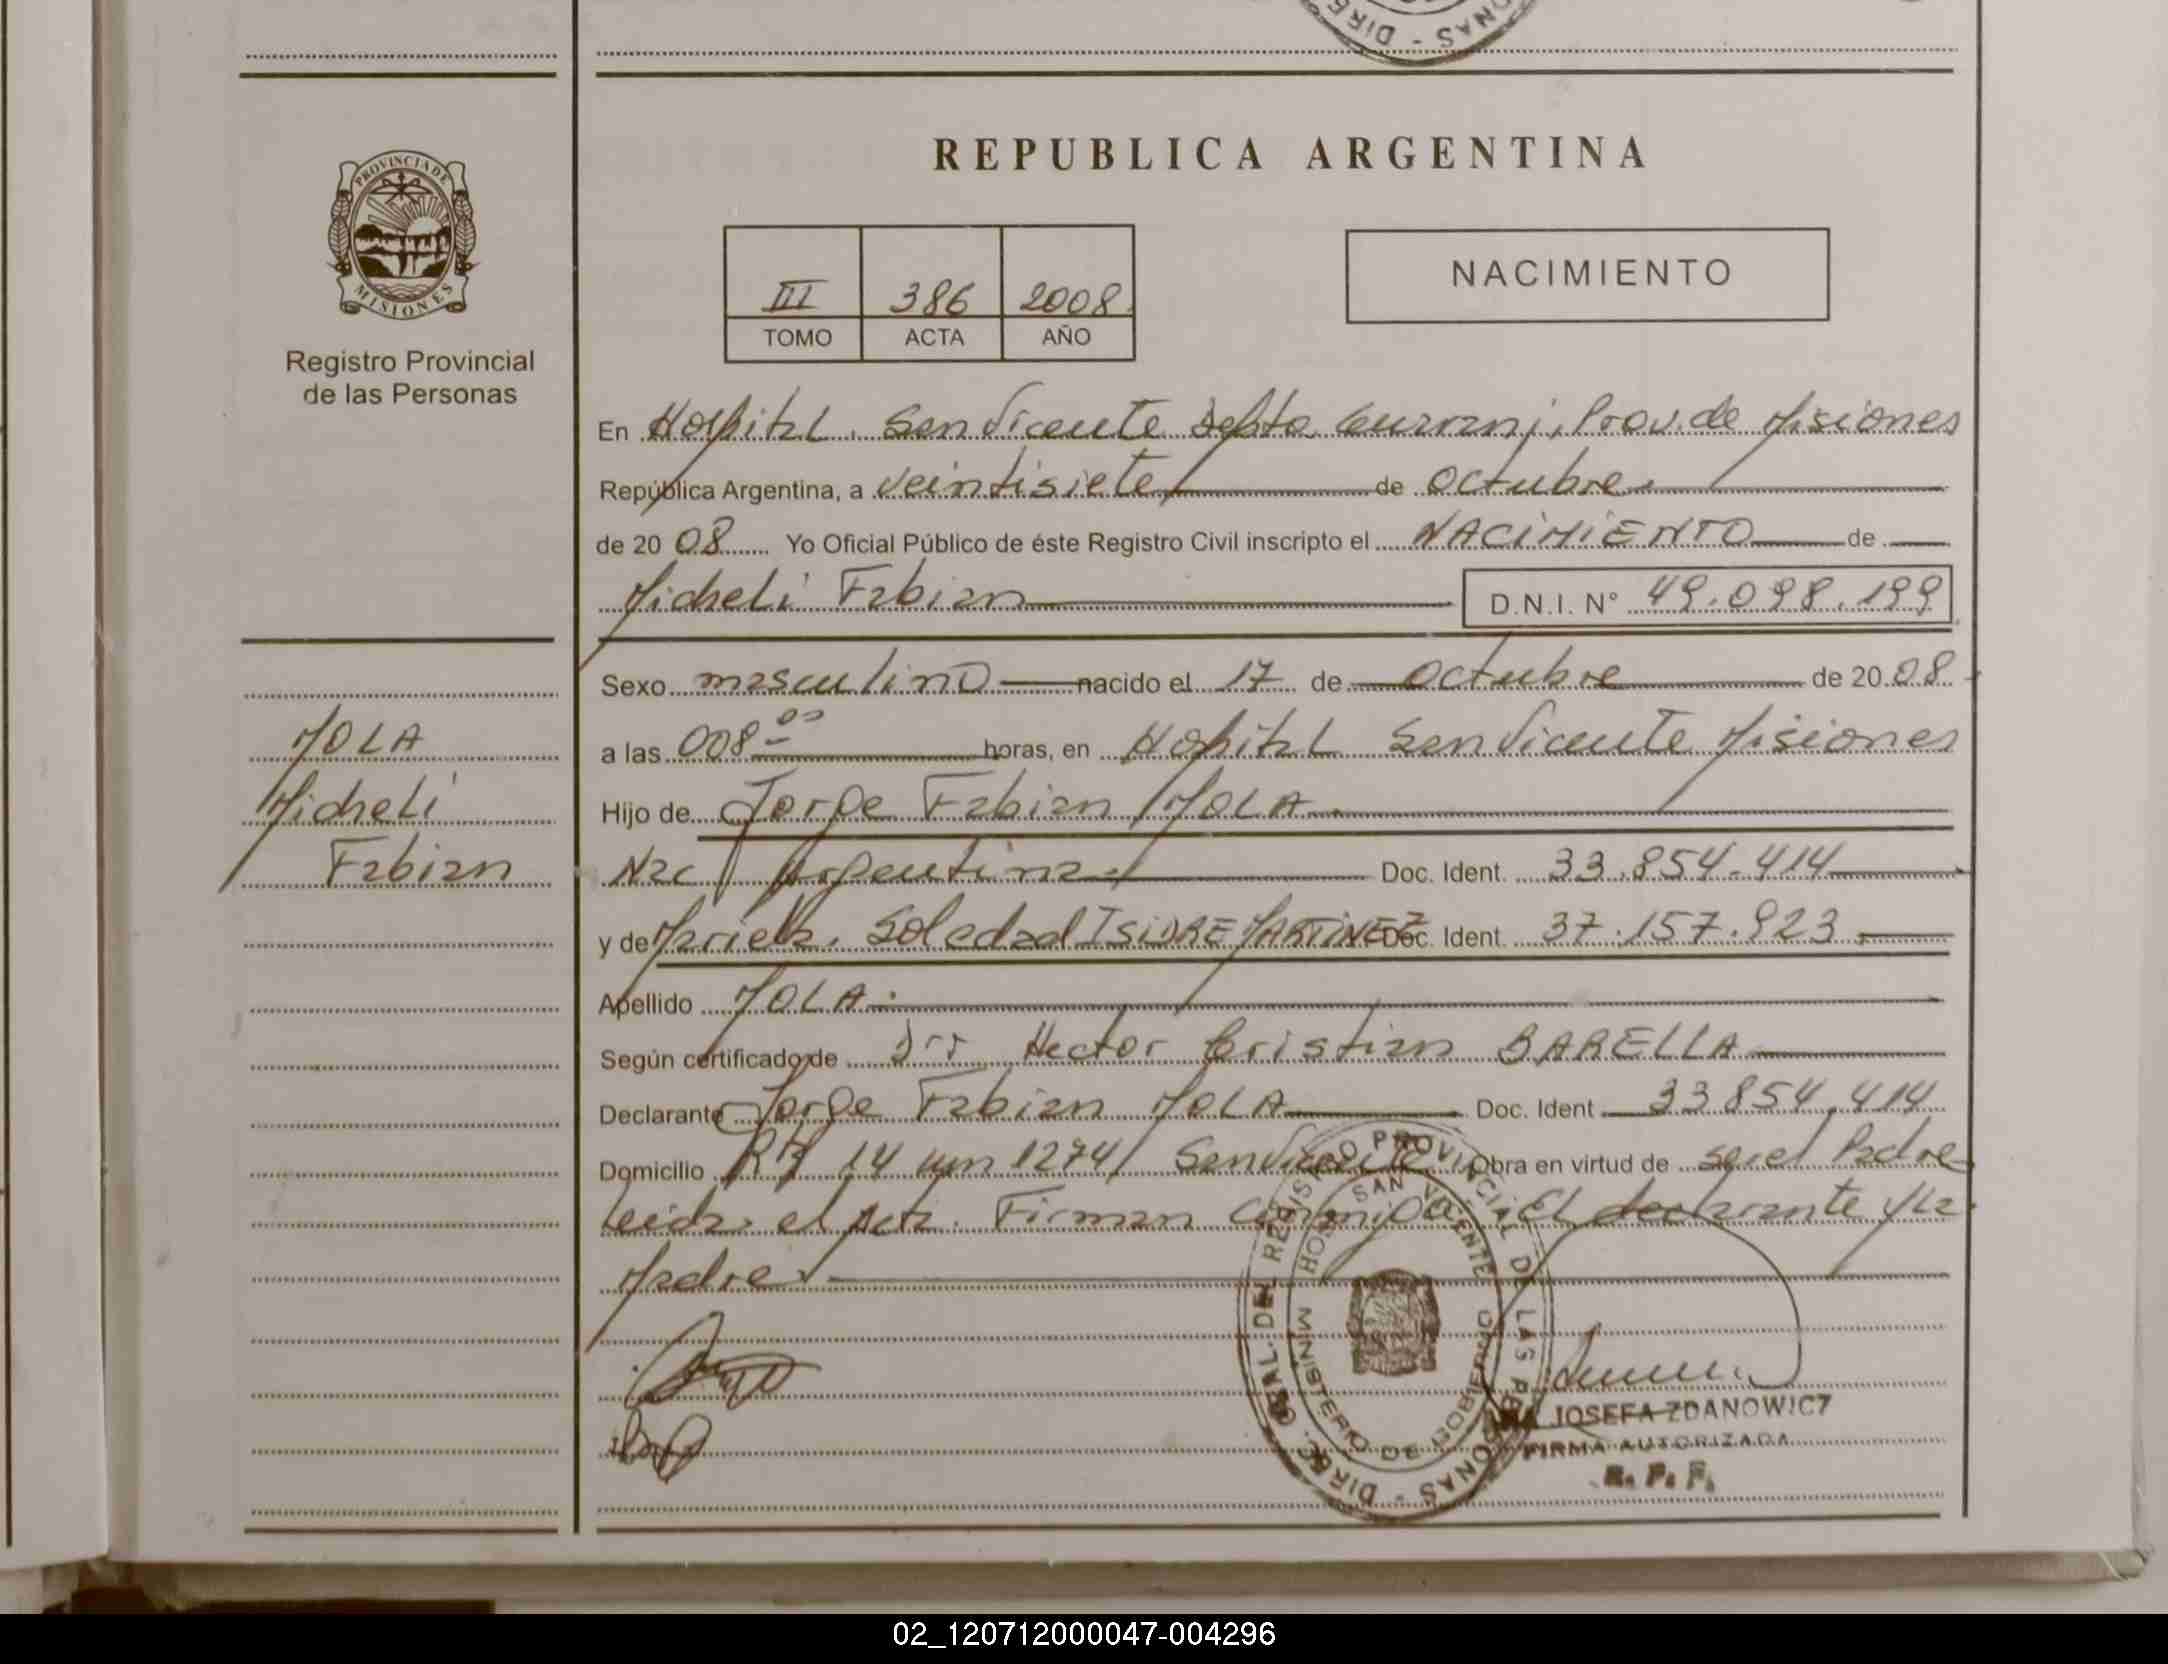 REPUBLICA ARGENTINA
PROVINCIA DE MISIONES
Registro Provincial
de las Personas
III 386 2008
TOMO ACTA AÑO
NACIMIENTO
En Hospital San Vicente Depto Guarani, Prov. de Misiones
República Argentina, a veintisiete de octubre
de 20 08 Yo Oficial Público de éste Registro Civil inscripto el NACIMIENTO de
Micheli Fabian D.N.I. N° 49.098.199
Sexo masculino nacido el 17 de octubre de 20 08
a las 008 00 horas, en Hospital San Vicente Misiones
Hijo de Jorge Fabian MOLA
Nac Argentina Doc. Ident. 33.854.414
y de Mariela Soledad ISIDRE MARTINEZ Doc. Ident. 37.157.923
Apellido MOLA
Según certificado de Drr Hector Cristian BARELLA
Declarante Jorge Fabian MOLA Doc. Ident 33854.414
Domicilio 14 km 1274 San Vicente Obra en virtud de ser el Padre
leida el Acta. Firman Conmigo El declarante y la
Madre
MOLA
Micheli
Fabian
DIREC. GRAL. DEL REGISTRO PROVINCIAL DE LAS PERSONAS
HOSP. SAN VICENTE
MINISTERIO DE GOBIERNO
JOSEFA ZDANOWICZ
FIRMA AUTORIZADA
R. P. P.
DIRE ONAS
02_120712000047-004296